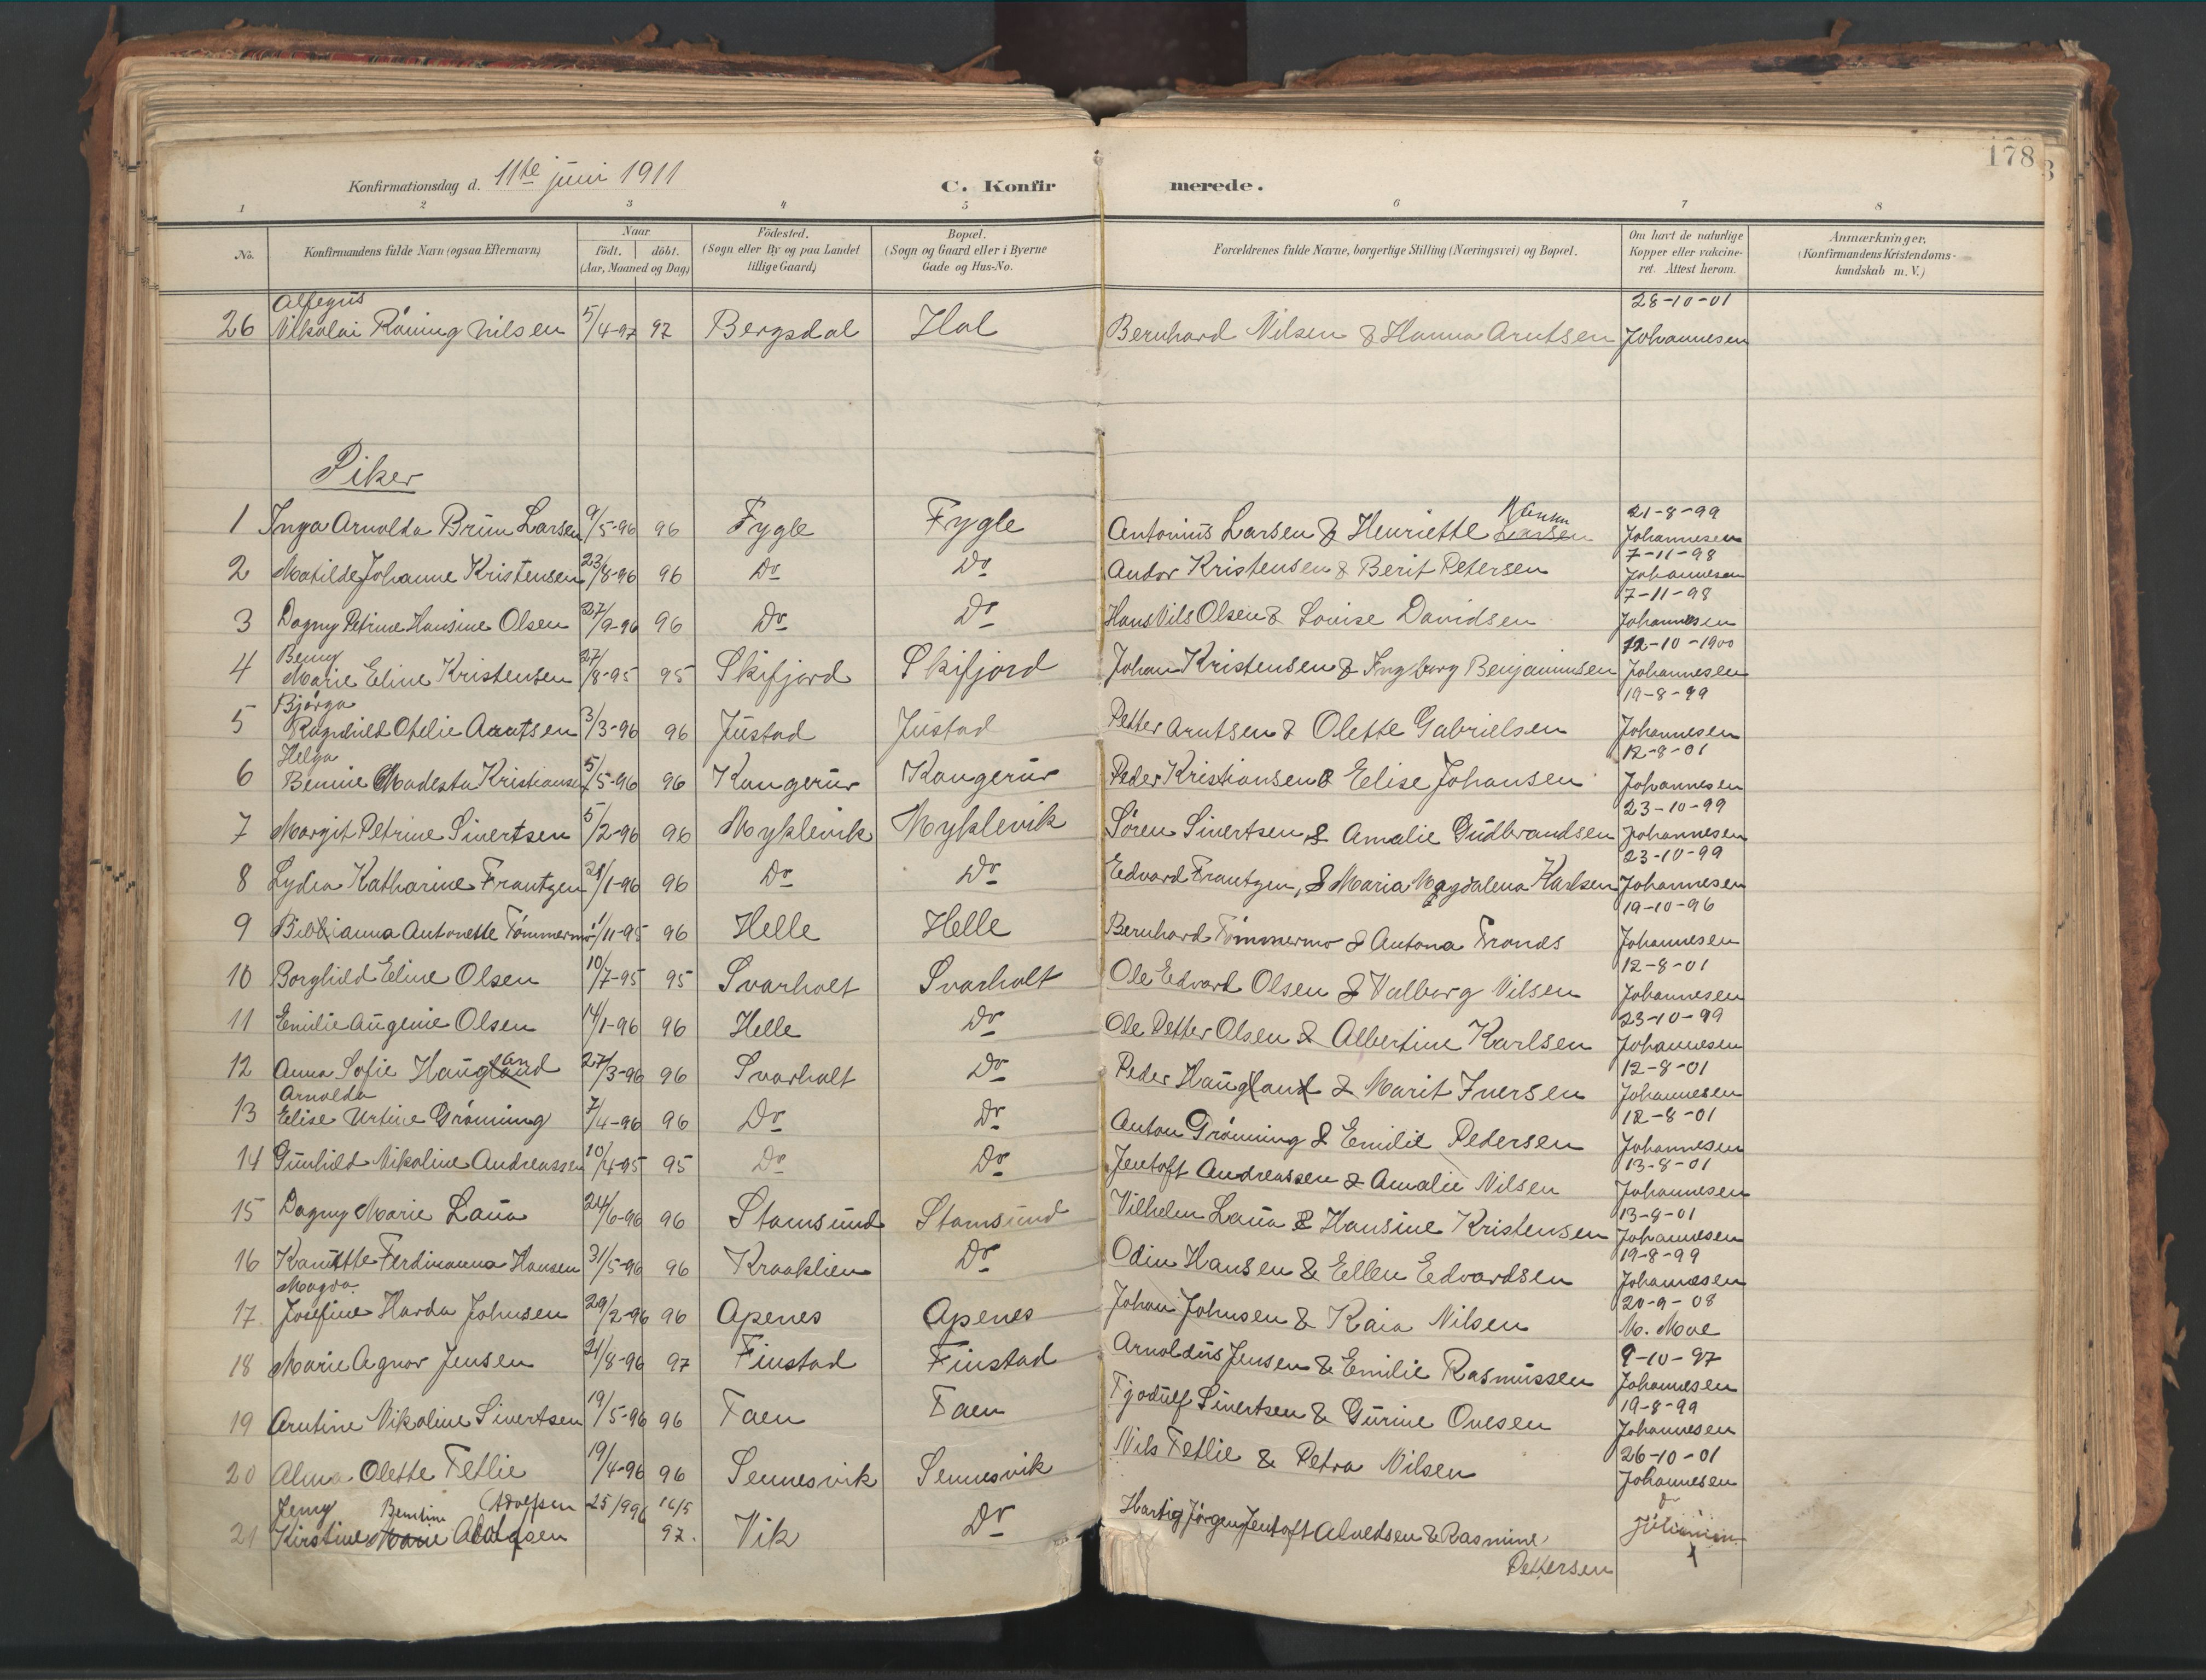 178
Konfirmationsdag d. 11te juni 1911 C. Konfirmerede.
1 2 3 4 5 6 7 8
No. Konfirmandens fulde Navn (ogsaa Efternavn) Naar født. døbt. (Aar, Maaned og Dag) Fødested. (Sogn eller By og paa Landet tillige Gaard) Bopæl. (Sogn og Gaard eller i Byerne Gade og Hus-No. Forældrenes fulde Navne, borgerlige Stilling (Næringsvei) og Bopæl. Om havt de naturlige Kopper eller vakcineret. Attest herom. Anmærkninger. (Konfirmandens Kristendomskundskab m. V.)
Alfegus 28-10-01
26 Nikolai Røning Nilsen 5/4-97 97 Bergsdal Hol Bernhard Nilsen & Hanna Arntsen Johannesen
Piker
Hanna 21-8-99
1 Inga Arnolda Brun Larsen 9/5-96 96 Fygle Fygle Antonius Larsen & Henriette Larsen Johannesen
7-11-98
2 Matilde Johanne Kristensen 23/8-96 96 Do Do Andor Kristensen & Berit Petersen Johannesen
7-11-98
3 Dagny Petrine Hansine Olsen 27/9-96 96 Do Do Hans Nils Olsen & Lovise Davidsen Johannesen
Benny 12-10-1900
4 Marie Eline Kristensen 27/8-95 95 Skifjord Skifjord Johan Kristensen & Ingborg Benjaminsen Johannesen
Bjørga 19-8-99
5 Ragnhild Otelie Arntsen 3/3-96 96 Justad Justad Petter Arntsen & Olette Gabrielsen Johannesen
Helga 12-8-01
6 Benine Modesta Kristiansen 5/5-96 96 Kangerur Kangerur Peder Kristiansen & Elise Johansen Johannesen
23-10-99
7 Margit Petrine Sivertsen 5/2-96 96 Myklevik Myklevik Søren Sivertsen & Amalie Gudbrandsen Johannesen
23-10-99
8 Lydia Katharine Frantzen 21/1-96 96 Do Do Edvard Frantzen, & Maria Magdalena Karlsen Johannesen
19-10-96
9 Bibianna Antonette Tømmermo 1/11-95 96 Helle Helle Bernhard Tømmermo & Antona Tronds Johannesen
12-8-01
10 Borghild Eline Olsen 10/7-95 95 Svarholt Svarholt Ole Edvard Olsen & Valborg Nilsen Johannesen
23-10-99
11 Emilie Augenie Olsen 14/1-96 96 Helle Do Ole Petter Olsen & Albertine Karlsen Johannesen
an 12-8-01
12 Anna Sofie Haugland 27/3-96 96 Svarholt Do Peder Haugland & Marit Iversen Johannesen
Arnolda 12-8-01
13 Elise Urtine Grønning 7/4-96 96 Do Do Anton Grønning & Emilie Pedersen Johannesen
13-8-01
14 Gunhild Nikoline Andreassen 10/4-95 95 Do Do Jentoft Andreassen & Amalie Nilsen Johannesen
13-9-01
15 Dagny Marie Laua 24/6-96 96 Stamsund Stamsund Vilhelm Laua & Hansine Kristensen Johannesen
19-8-99
16 Kanutte Ferdinanna Hansen 31/5-96 96 Kraaklien Do Odin Hansen & Ellen Edvardsen Johannesen
Magda. 20-9-08
17. Josefine Harda Johnsen 29/2-96 96 Apenes Apenes Johan Johnsen & Kaia Nilsen M. Moe
9-10-97
18 Marie Agnor Jensen 21/8-96 97 Finstad Finstad Arnoldus Jensen & Emilie Rasmussen Johannesen
19-8-99
19 Arntine Nikoline Sivertsen 19/5-96 96 Taen Taen Tjodulf Sivertsen & Gurine Ovesen Johannesen
26-10-01
20 Alma Olette Tetlie 19/4-96 96 Sennesvik Sennesvik Nils Tetlie & Petra Nilsen Johannesen
Jenny Berntine (Adolfsen 25/996 16/5
21 Kirstine Marie 97. Vik Do Hartig Jørgen Jentoft Alvedsen & Rasmine
Pettersen